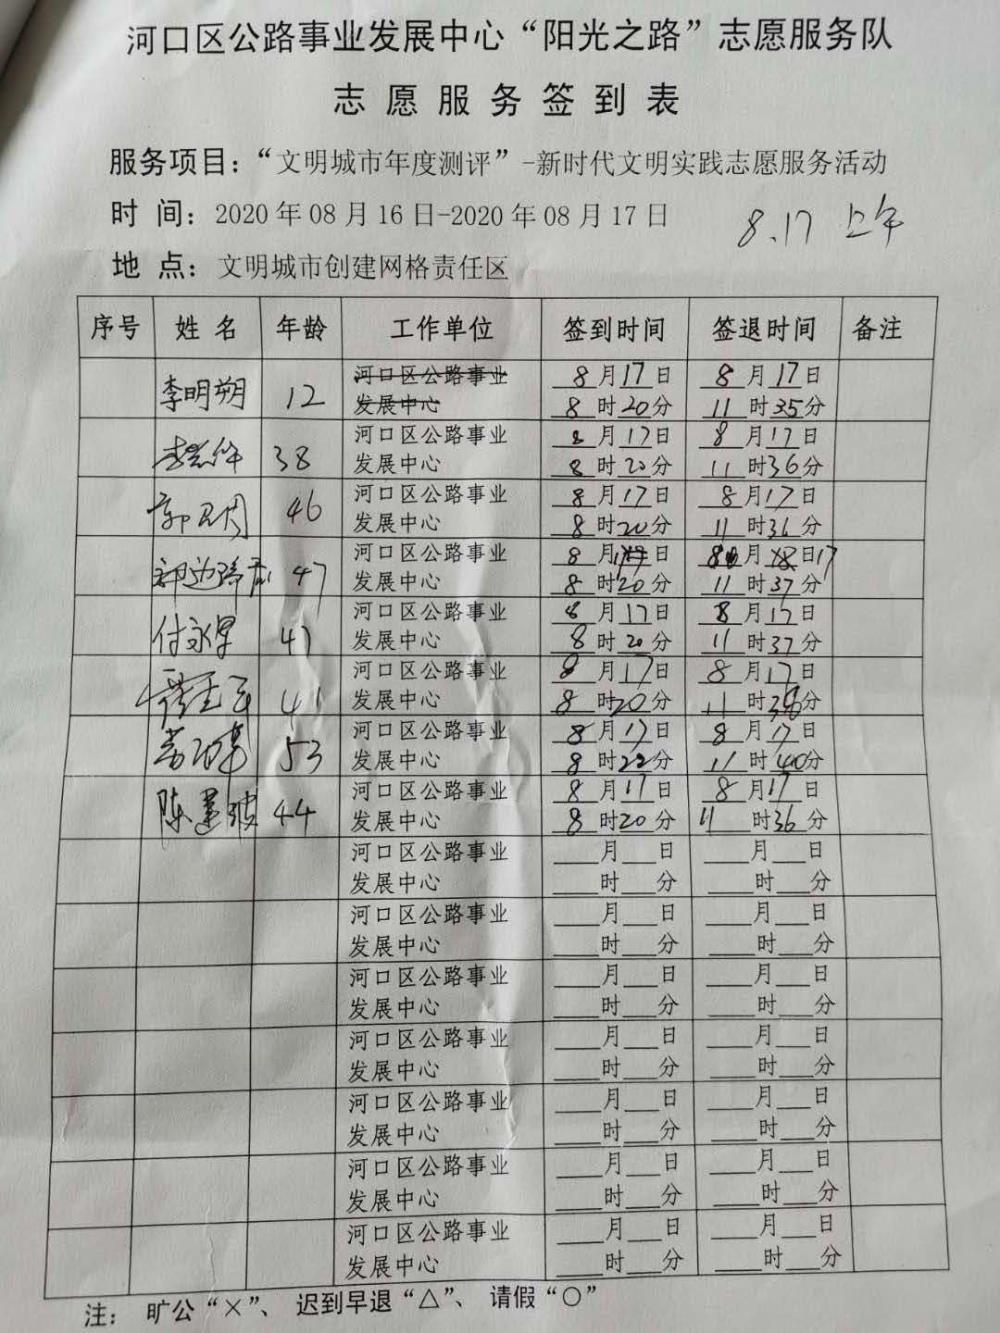 河口区公路事业发展中心“阳光之路”志愿服务队
志愿服务签到表
服务项目：“文明城市年度测评”-新时代文明实践志愿服务活动
时 间：2020年08月16日-2020年08月17日
8.17 上午
地 点：文明城市创建网格责任区
序号 姓名 年龄 工作单位 签到时间 签退时间 备注
河口区公路事业 8月17日 8月17日
李明朔 12 发展中心 8时20分 11时35分
河口区公路事业 8月17日 8月17日
38 发展中心 8时20分 11时36分
河口区公路事业 8月17日 8月17日
46 发展中心 8时20分 11时36分
河口区公路事业 8月17日 8月日17
47 发展中心 8时20分 11时37分
河口区公路事业 8月17日 8月17日
付永军 47 发展中心 8时20分 11时37分
河口区公路事业 8月17日 8月17日
41 发展中心 8时20分 11时38分
河口区公路事业 8月17日 8月17日
53 发展中心 8时22分 11时40分
河口区公路事业 8月17日 8月17日
陈建波 44 发展中心 8时20分 11时36分
河口区公路事业 ___月___日 ___月___日
发展中心 ___时___分 ___时___分
河口区公路事业 ___月___日 ___月___日
发展中心 ___时___分 ___时___分
河口区公路事业 ___月___日 ___月___日
发展中心 ___时___分 ___时___分
河口区公路事业 ___月___日 ___月___日
发展中心 ___时___分 ___时___分
河口区公路事业 ___月___日 ___月___日
发展中心 ___时___分 ___时___分
河口区公路事业 ___月___日 ___月___日
发展中心 ___时___分 ___时___分
河口区公路事业 ___月___日 ___月___日
发展中心 ___时___分 ___时___分
注： 旷公“×”、 迟到早退“△”、 请假“○”